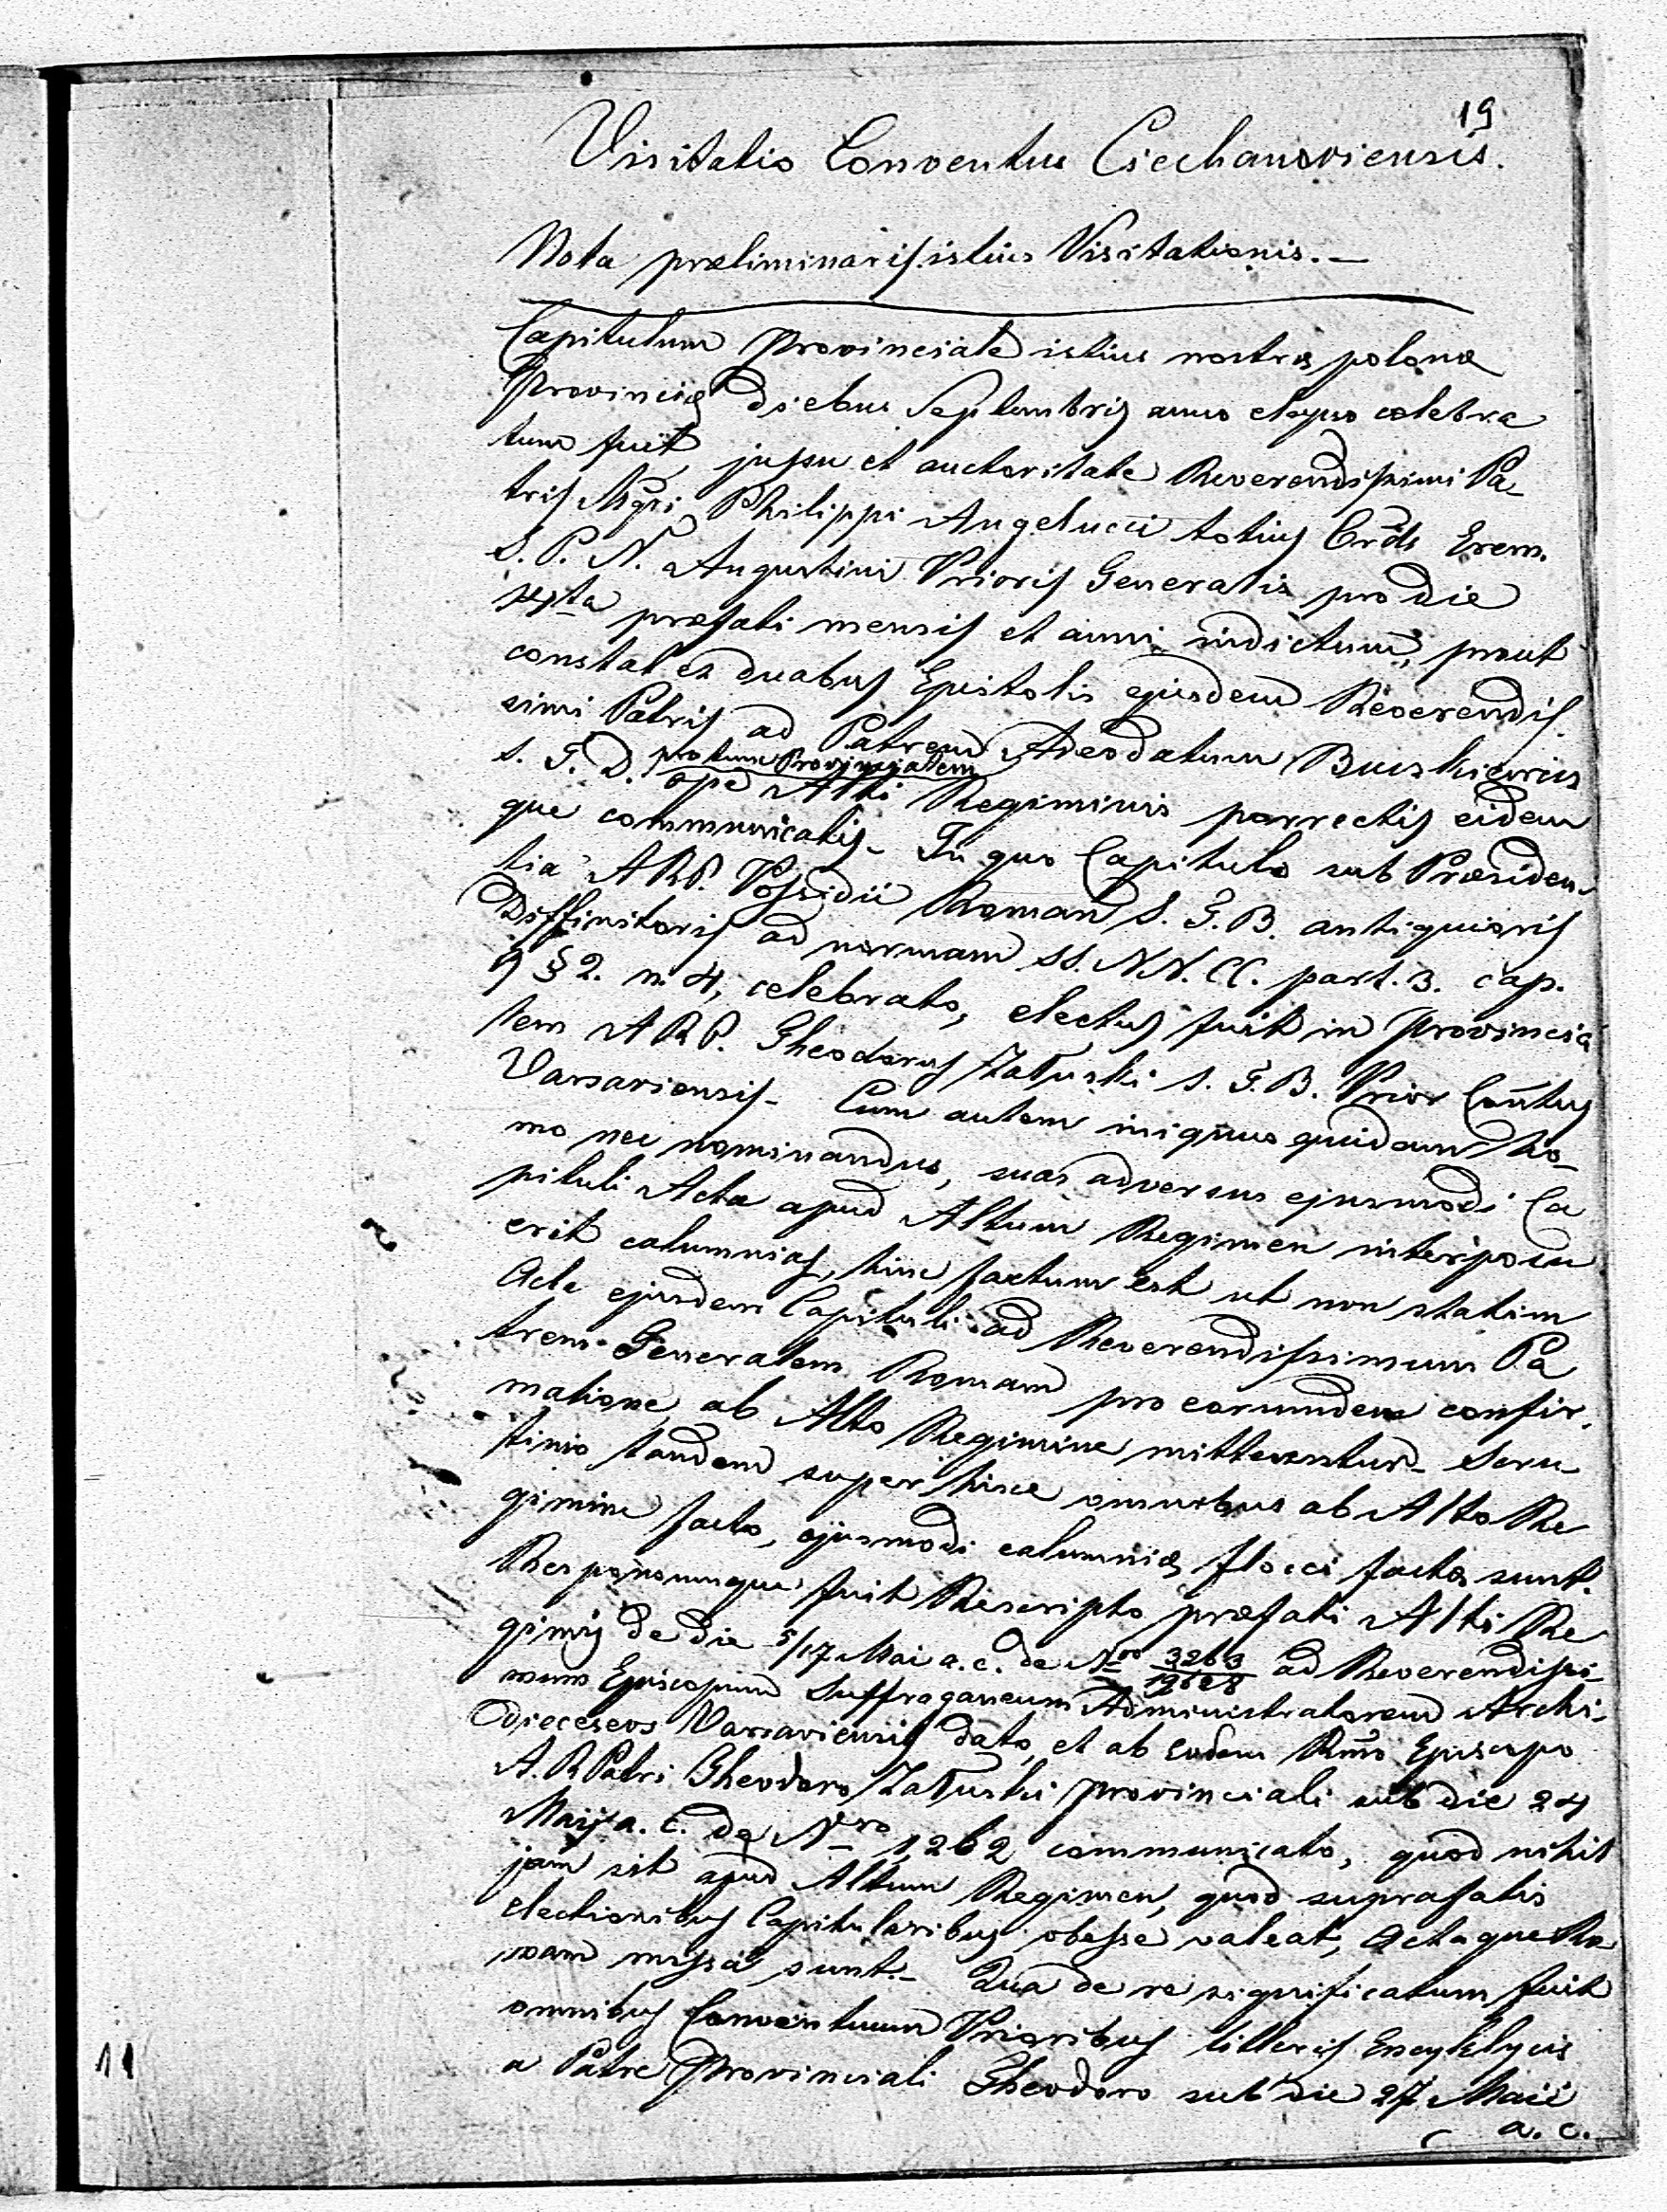 19
Visitatio Conventus Ciechanoviensis.
Nota præliminaris istius Visitationis.—
Capitulum Provinciale istius nostræ polonæ
Provinciæ diebus Septembris anno elapso celebra
tum fuit, jussu et auctoritate Reverendissimi Pa-
tris Mgri Philippi Angelucci totius Ordis Erem.
S. P. N. Augustini Prioris Generalis pro die
præfati mensis et anni indictum, prout
constat ex duabus Epistolis ejusdem Reverendis.
simi Patris ad Patrem Adeodatum
pro tunc Provincialem
S. T. D. ope Alti Regiminis porrectis eidem
que communicatis- In quo Capitulo sub Præsiden-
tia A R P. Possidii Roman S. T. B. antiquioris
Diffinitoris ad normam SS. NN. CC. part. 3. cap.
9 § 2. n. 4, celebrato, electus fuit in Provincia
lem A R P. Theodorus Załuski S. T. B. Prior Contus
Varsaviensis- Cum autem iniquus quidam ho-
mo nec nominandus, suas adversus ejusmodi Ca
pituli Acta apud Altum Regimen interposu
erit calumnias, hinc factum est ut non statim
Acta ejusdem Capituli ad Reverendissimum Pa
trem Generalem Romam pro earumdem confir.
matione, ab Alto Regimine mitterentur- Scru-
tinio tandem super hisce omnibus ab Alto Re
gimine facto, ejusmodi calumniæ flocci factæ sunt.
Responsumque fuit Rescripto præfati Alti Re
giminis de die 5/17 Mai a. c. de Nro 3263/19628 ad Reverendissi-
mum Episcopum Suffraganeum Administratorem Archi-
dieceseos Varsaviensis dato, et ab eodem Rmo Episcopo
A. R Patri Theodoro Załuski Provinciali sub die 24
Maij a. c. de Nro 1,262 communicato, quod nihil
jam sit apud Altum Regimen, quod suprafatis
electionibus Capitularibus obesse valeat, Actaque Ro
mam missa sunt.- Qua de re significatum fuit
omnibus Conventuum Prioribus litteris Encyklycis
a Patre Provinciali Theodoro sub die 27 Maii
a. c.
11